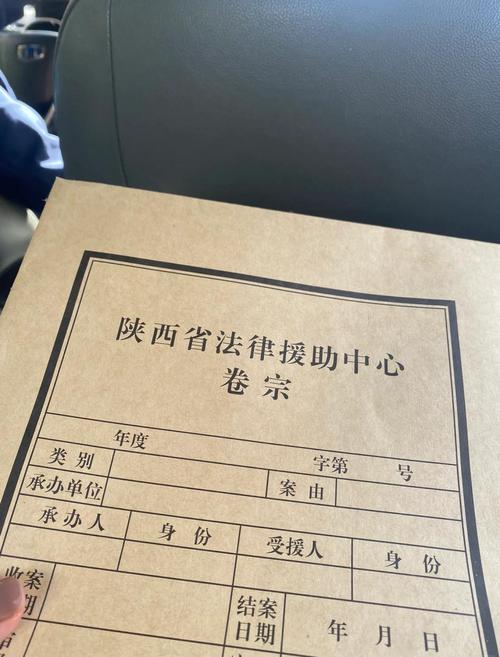 陕西省法律援助中心
卷宗
年度 字第 号
类别
承办单位 案由
承办人 身份 受援人 身份
收案 结案
期 日期 年 月 日